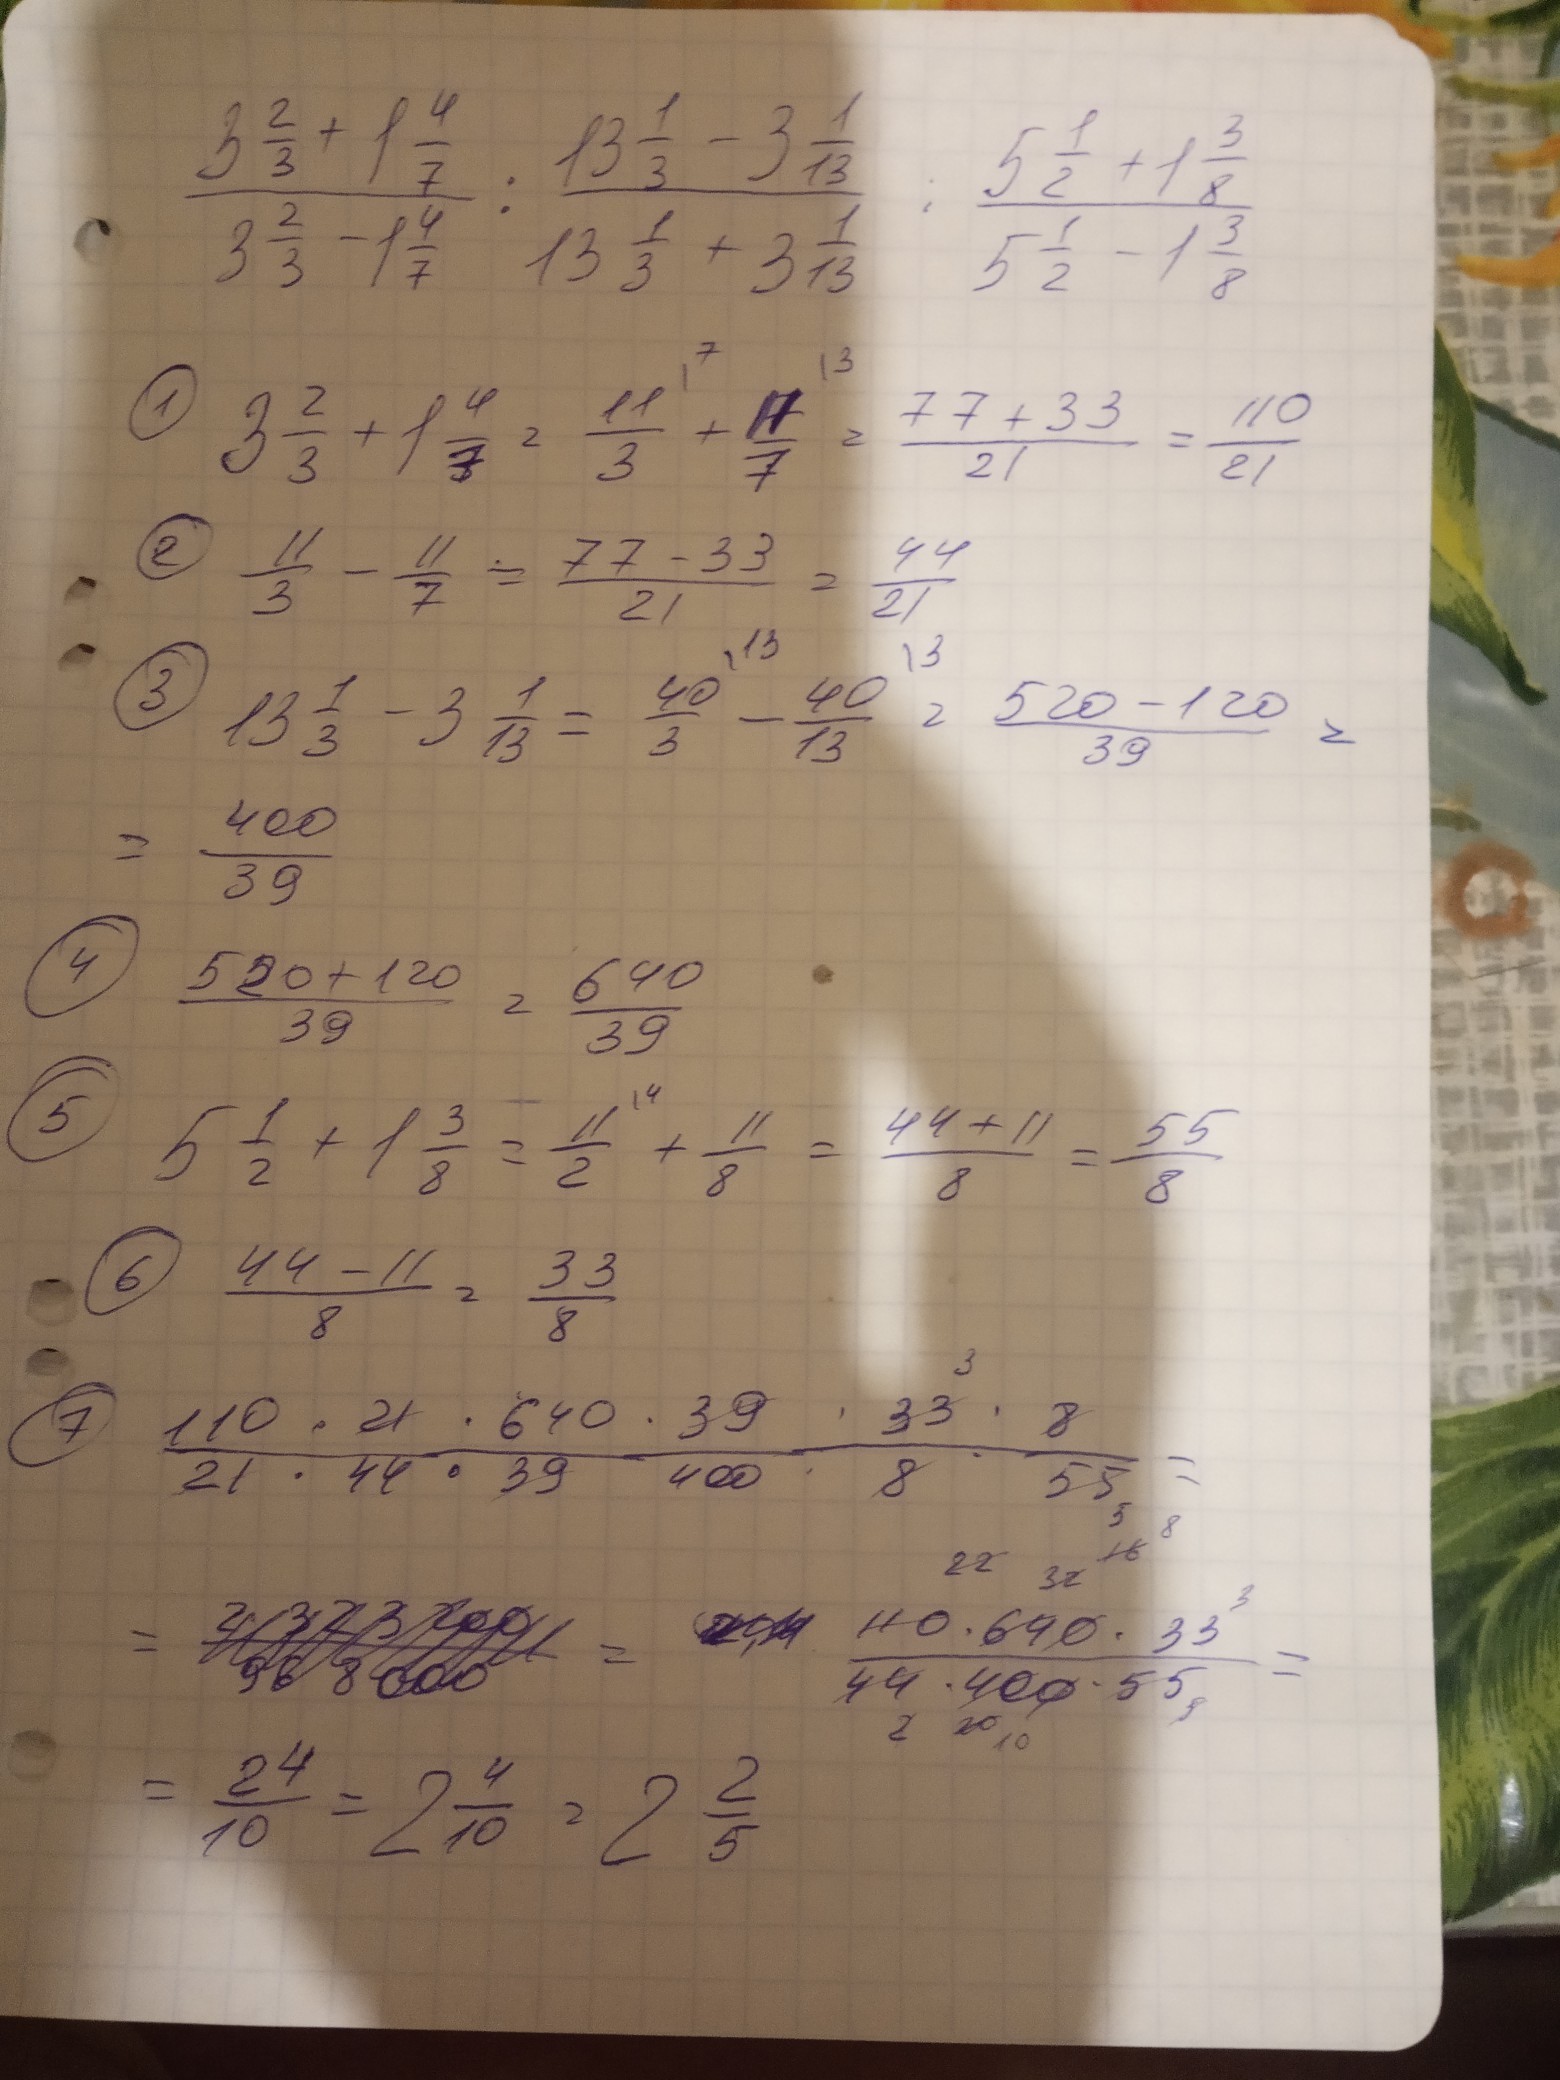 3 2/3 + 1 4/7 : 13 1/3 - 3 1/13 : 5 1/2 + 1 3/8
3 2/3 - 1 4/7 13 1/3 + 3 1/13 5 1/2 - 1 3/8
① 3 2/3 + 1 4/7 = 11/3 \7 + 11/7 \3 = (77 + 33)/21 = 110/21
② 11/3 - 11/7 = (77 - 33)/21 = 44/21
③ 13 1/3 - 3 1/13 = 40/3 \13 - 40/13 \3 = (520 - 120)/39 =
= 400/39
④ (520 + 120)/39 = 640/39
⑤ 5 1/2 + 1 3/8 = 11/2 \4 + 11/8 = (44 + 11)/8 = 55/8
⑥ (44 - 11)/8 = 33/8
3
⑦ 110 · 21 · 640 · 39 · 33 · 8
21 · 44 · 39 400 · 8 · 55 =
5
22 32 16 8
= = 110 · 640 · 33 3
44 · 400 · 55 =
2 20 10 5
= 24/10 = 2 4/10 = 2 2/5